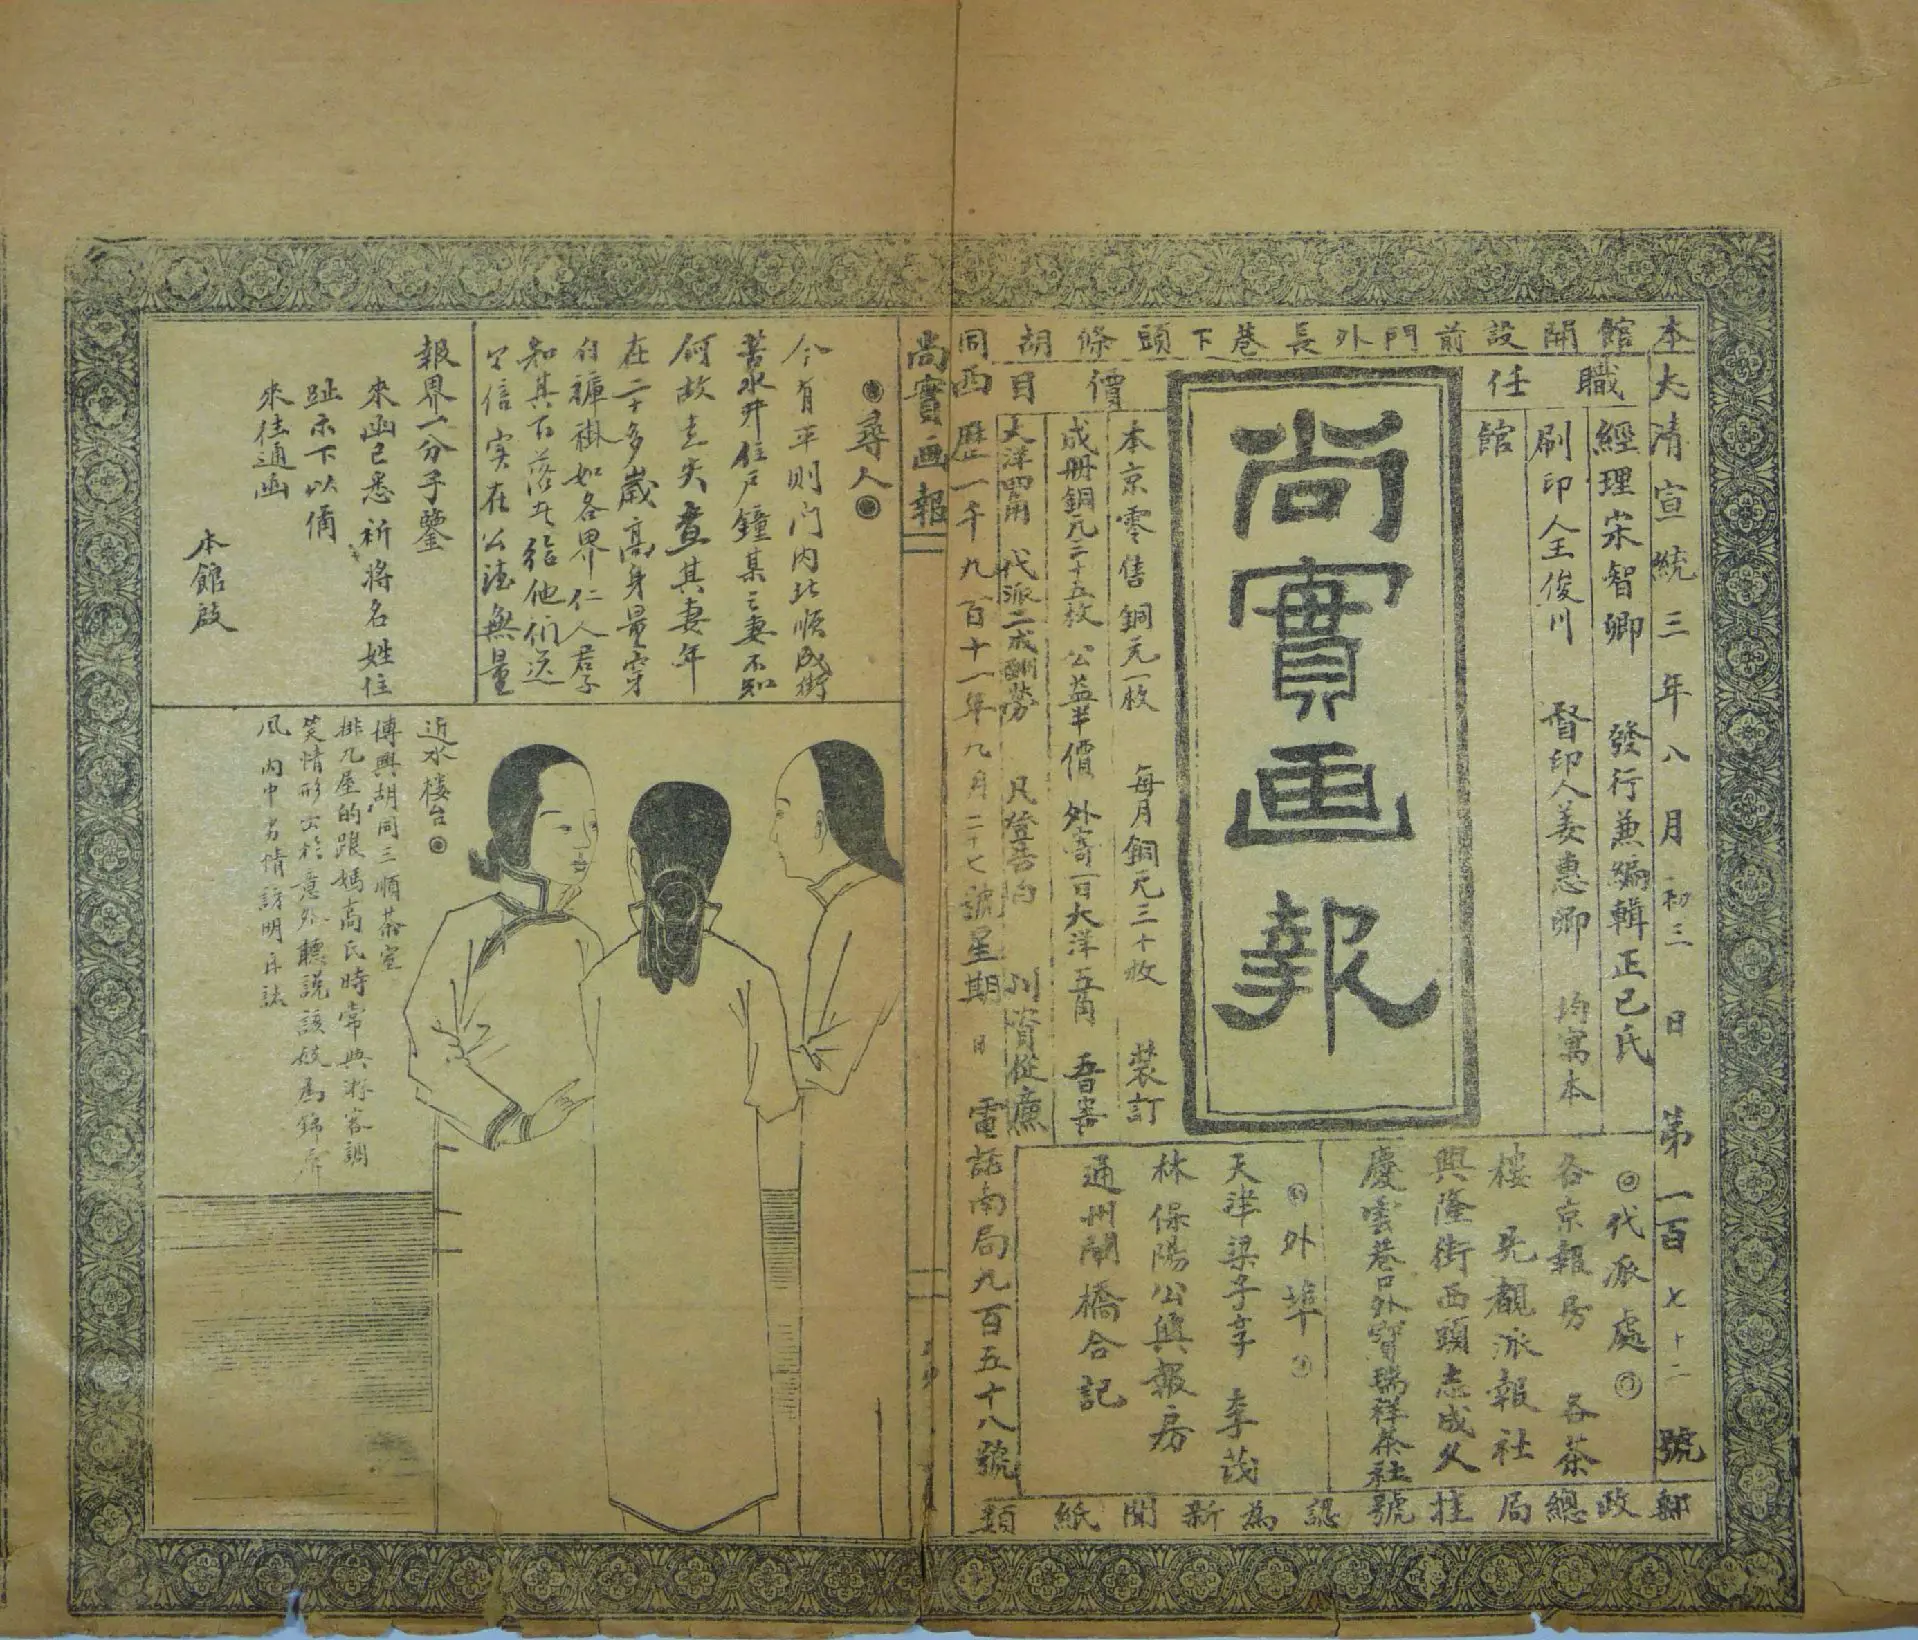 本館開設前門外長巷下頭條胡同
大清宣統三年八月初三日 第一百七十二號
職任
經理宋智卿 發行兼編輯正已氏
刷印人王俊川 督印人姜惠卿 均寓本
館
尚實画報
價目
本京零售銅元一枚 每月銅元三十枚 裝訂
成册銅元三十五枚 公益半價 外寄一日大洋五角 吾寄
大洋四角 代派二成酬勞 凡登告白 川資從廉
西歷一千九百十一年九月二十七號星期日 電話南局九百五十八號
◎代派處◎
各京報房 各茶
樓 先覩派報社
興隆街西頭志成久
慶雲巷口外寶瑞祥茶社
◎外埠◎
天津梁子亨 李茂
林保陽公興報房
通州閘橋合記
郵政總局挂號認為新聞紙類
尚實画報
◉尋人◉
今有平則门内北順城街
苦水井住户鐘某之妻不知
何故走失查其妻年
在二十多歲高身量穿
白褲褂如各界仁人君子
知其下落者給他們送
个信实在公德無量
報界一分子鑒
來函已悉祈將名姓住
趾示下以俻
來往通函
本館啟
近水楼台◉
傅興胡同三順茶室
排九屋的跟媽高氏時常與游客調
笑情形出於意外聽說該妓為錦屏
風内中另情訪明再誌